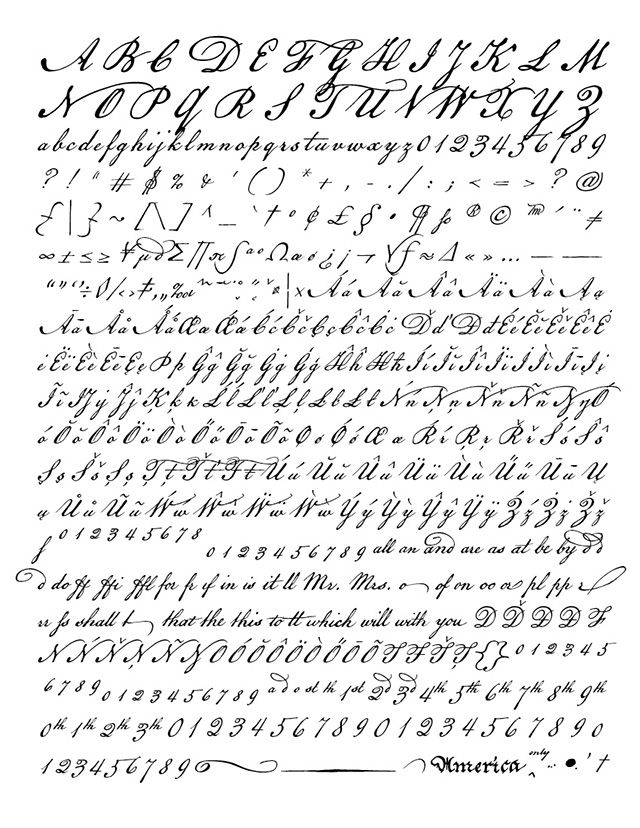 A B C D E F G H I J K L M
N O P Q R S T U V W X Y Z
a b c d e f g h i j k l m n o p q r s t u v w x y z 0 1 2 3 4 5 6 7 8 9
? ! " # $ % & ' ( ) * + , - . / : ; < = > ? @
{ | } ~ [ \ ] ^ _ ` † ° ¢ £ § • ¶ ß ® © ™ ´ ¨ ≠
∞ ± ≤ ≥ ¥ µ ∂ Σ ∏ π ∫ ª º Ω æ ø ¿ ¡ ¬ √ ƒ ≈ Δ « » … – —
“ ” ‘ ’ ÷ ◊ / ‹ › ‡ · ‚ „ ‰ ¦ × Á á Ă ă Â â Ä ä À à Ą ą
Ā ā Å å Ã ã Æ æ Ć ć Č č Ç ç Ĉ ĉ Ċ ċ Ď ď Đ đ É é Ě ě Ê ê Ė
ė Ë ë È è Ē ē Ę ę Þ þ Ğ ğ Ĝ ĝ Ġ ġ Ĥ ĥ Ħ ħ Í í Ĭ ĭ Î î Ï ï Ì ì Ī ī Į į
Ĩ ĩ Ĳ ĳ Ĵ ĵ Ķ ķ Ĺ ĺ Ľ ľ Ļ ļ Ŀ ŀ Ł ł Ń ń Ň ň Ņ ņ Ñ ñ Ŋ ŋ Ó
ó Ŏ ŏ Ô ô Ö ö Ò ò Ő ő Ō ō Õ õ Ø ø Œ œ Ŕ ŕ Ŗ ŗ Ř ř Ś ś Ŝ ŝ
Ş ş Š š Ș ș Ŧ ŧ Ť ť Ţ ţ Ú ú Ŭ ŭ Û û Ü ü Ù ù Ű ű Ū ū Ų
ų Ů ů Ũ ũ Ẃ ẃ Ŵ ŵ Ẅ ẅ Ẁ ẁ Ý ý Ỳ ỳ Ŷ ŷ Ÿ ÿ Ź ź Ż ż Ž ž
f 0 1 2 3 4 5 6 7 8 0 1 2 3 4 5 6 7 8 9 all an and are as at be by d d
d do ff ffi ffl for fr if in is it ll Mr. Mrs. o of on oo or pl pp r
rr ss shall t that the this to tt which will with you D Ď Đ D F
N Ń Ň Ņ Ñ Ŋ O Ó Ŏ Ô Ö Ò Ő Ō Õ T Ŧ Ť Ţ { } 0 1 2 3 4 5
6 7 8 9 0 1 2 3 4 5 6 7 8 9 a d o st th 1st 2d 3d 4th 5th 6th 7th 8th 9th
0th 1th 2th 3th 0 1 2 3 4 5 6 7 8 9 0 1 2 3 4 5 6 7 8 9 0
1 2 3 4 5 6 7 8 9 America only